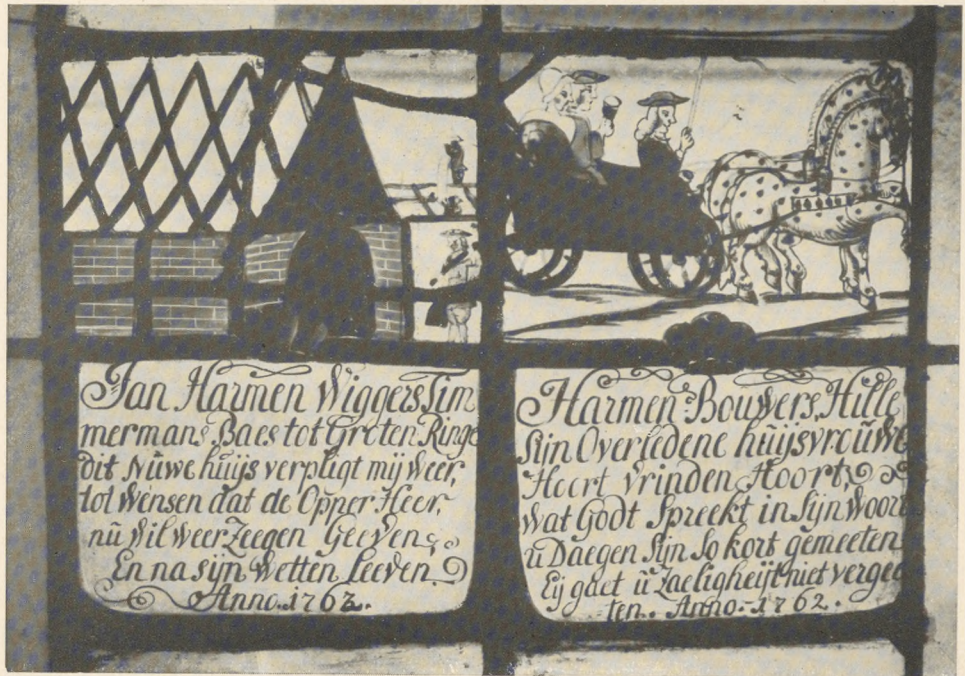 Jan Harmen Wiggers Tim
mermans Baes tot Groten Ringe
dit Nŭwe huijs verpligt mij weer,
tot wensen dat de Opper Heer,
nŭ wil weer Zeegen Geeven
En na sijn wetten Leeven.
Anno. 1762.
Harmen Bouwers, Hille
Sijn Overledene hŭijsvroŭwe
Hoort vrinden Hoort,
wat Godt Spreekt in Sijn woort
ŭ Daegen Sijn So kort gemeeten
Eij gaet ŭ Zaeligheijt niet vergee
ten. Anno. 1762.